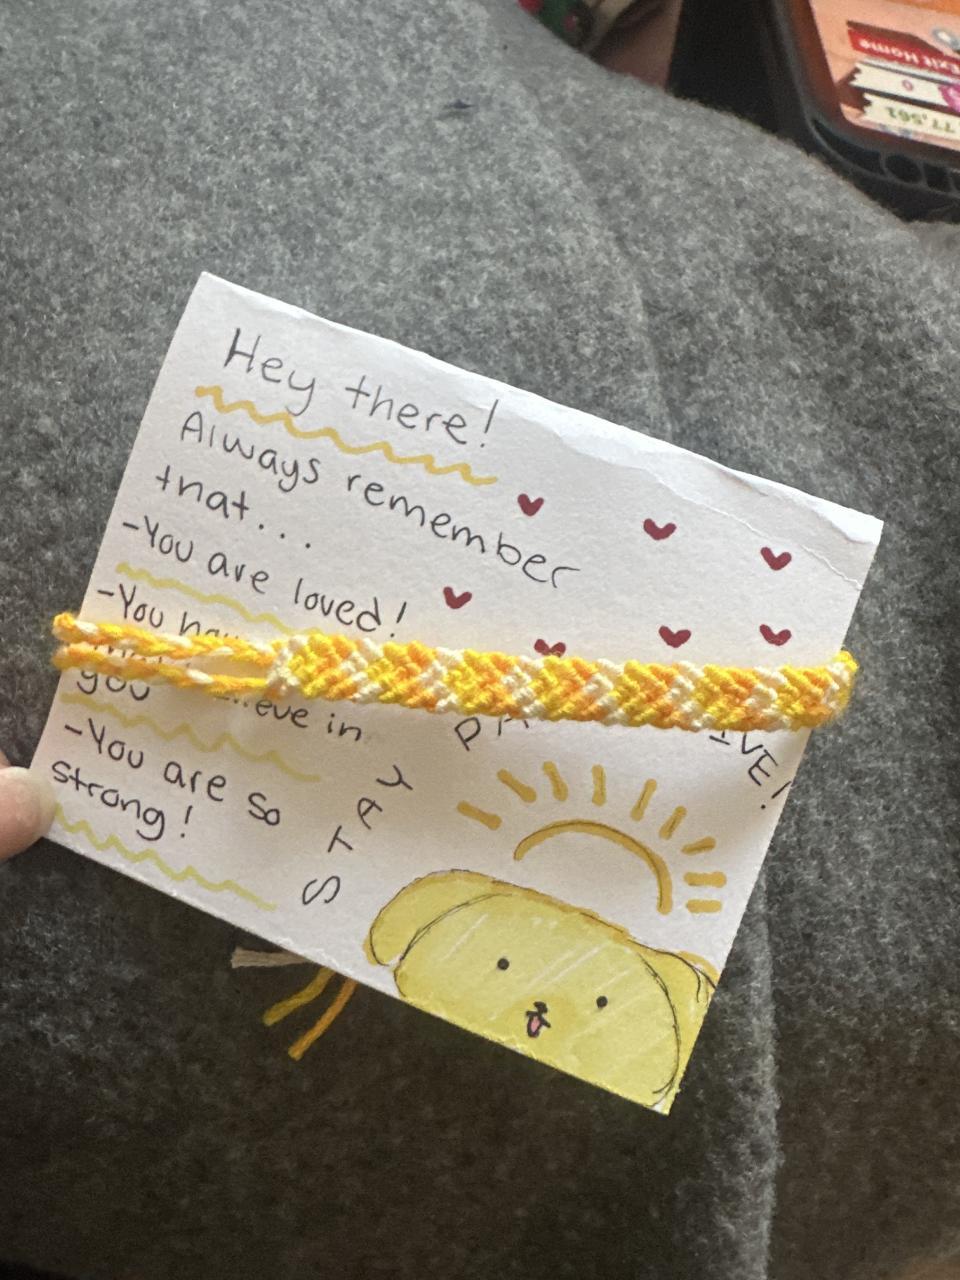 Hey there!
Always remember
that...
-You are loved!
-You
you
in
-You are so
strong!
STAY
VE!
Exit Home
0
77,561